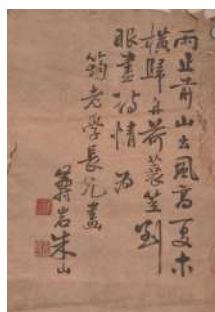 雨止前山出風高夏木
橫歸舟荷蓑笠到
眼盡詩情 為
筠老學長兄畫
岩朱山